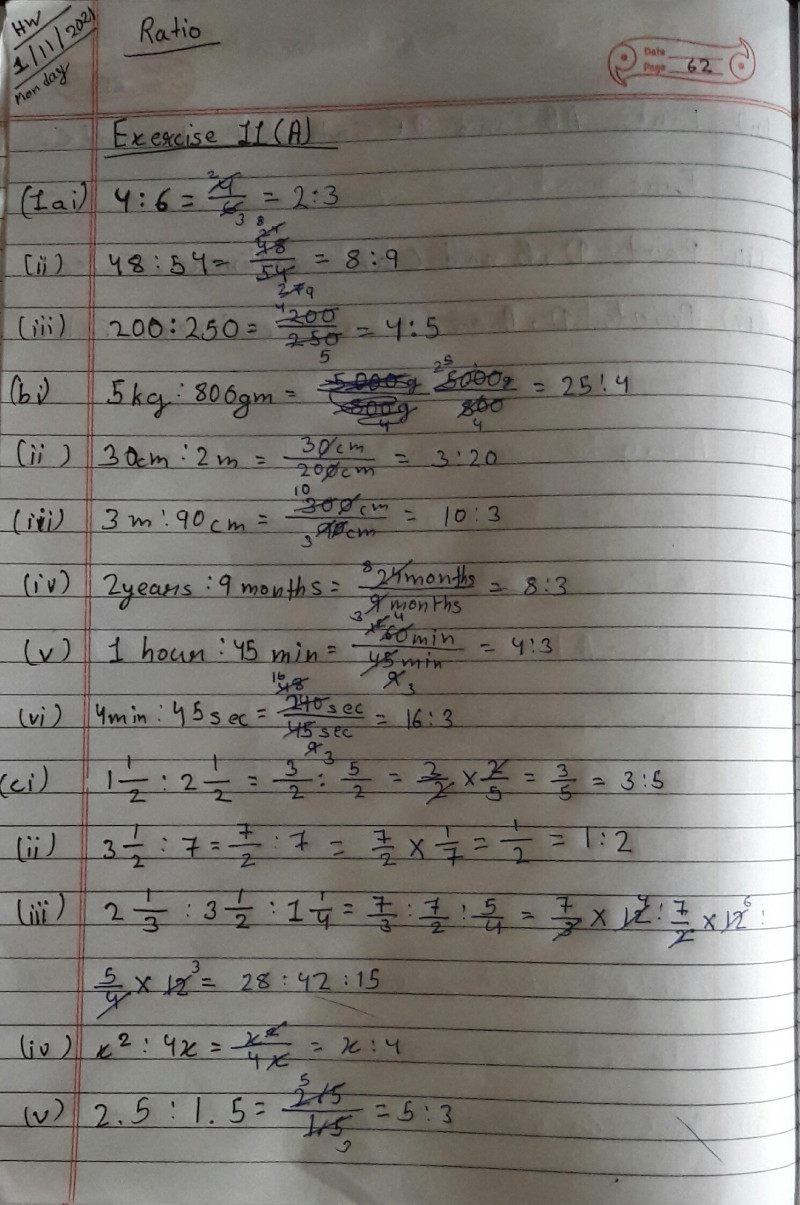 HW
1/11/2021
Monday
Ratio
Date
Page 62
Exercise 11(A)
(1ai) 4:6 = 4/6 = 2:3
(ii) 48:54 = 48/54 = 8:9
(iii) 200:250 = 200/250 = 4:5
(bi) 5kg : 800gm = 5000g/800g 5000g/800 = 25:4
(ii) 30cm : 2m = 30cm/200cm = 3:20
(iii) 3m : 90cm = 300cm/90cm = 10:3
(iv) 2years : 9 months = 24months/9 months = 8:3
(v) 1 hour : 45 min = 60min/45min = 4:3
(vi) 4min : 45sec = 240sec/45sec = 16:3
(ci) 1 1/2 : 2 1/2 = 3/2 : 5/2 = 3/2 × 2/5 = 3/5 = 3:5
(ii) 3 1/2 : 7 = 7/2 : 7 = 7/2 × 1/7 = 1/2 = 1:2
(iii) 2 1/3 : 3 1/2 : 1 1/4 = 7/3 : 7/2 : 5/4 = 7/3 × 12 : 7/2 × 12 :
5/4 × 12 = 28 : 42 : 15
(iv) x² : 4x = x²/4x = x:4
(v) 2.5 : 1.5 = 2.5/1.5 = 5:3